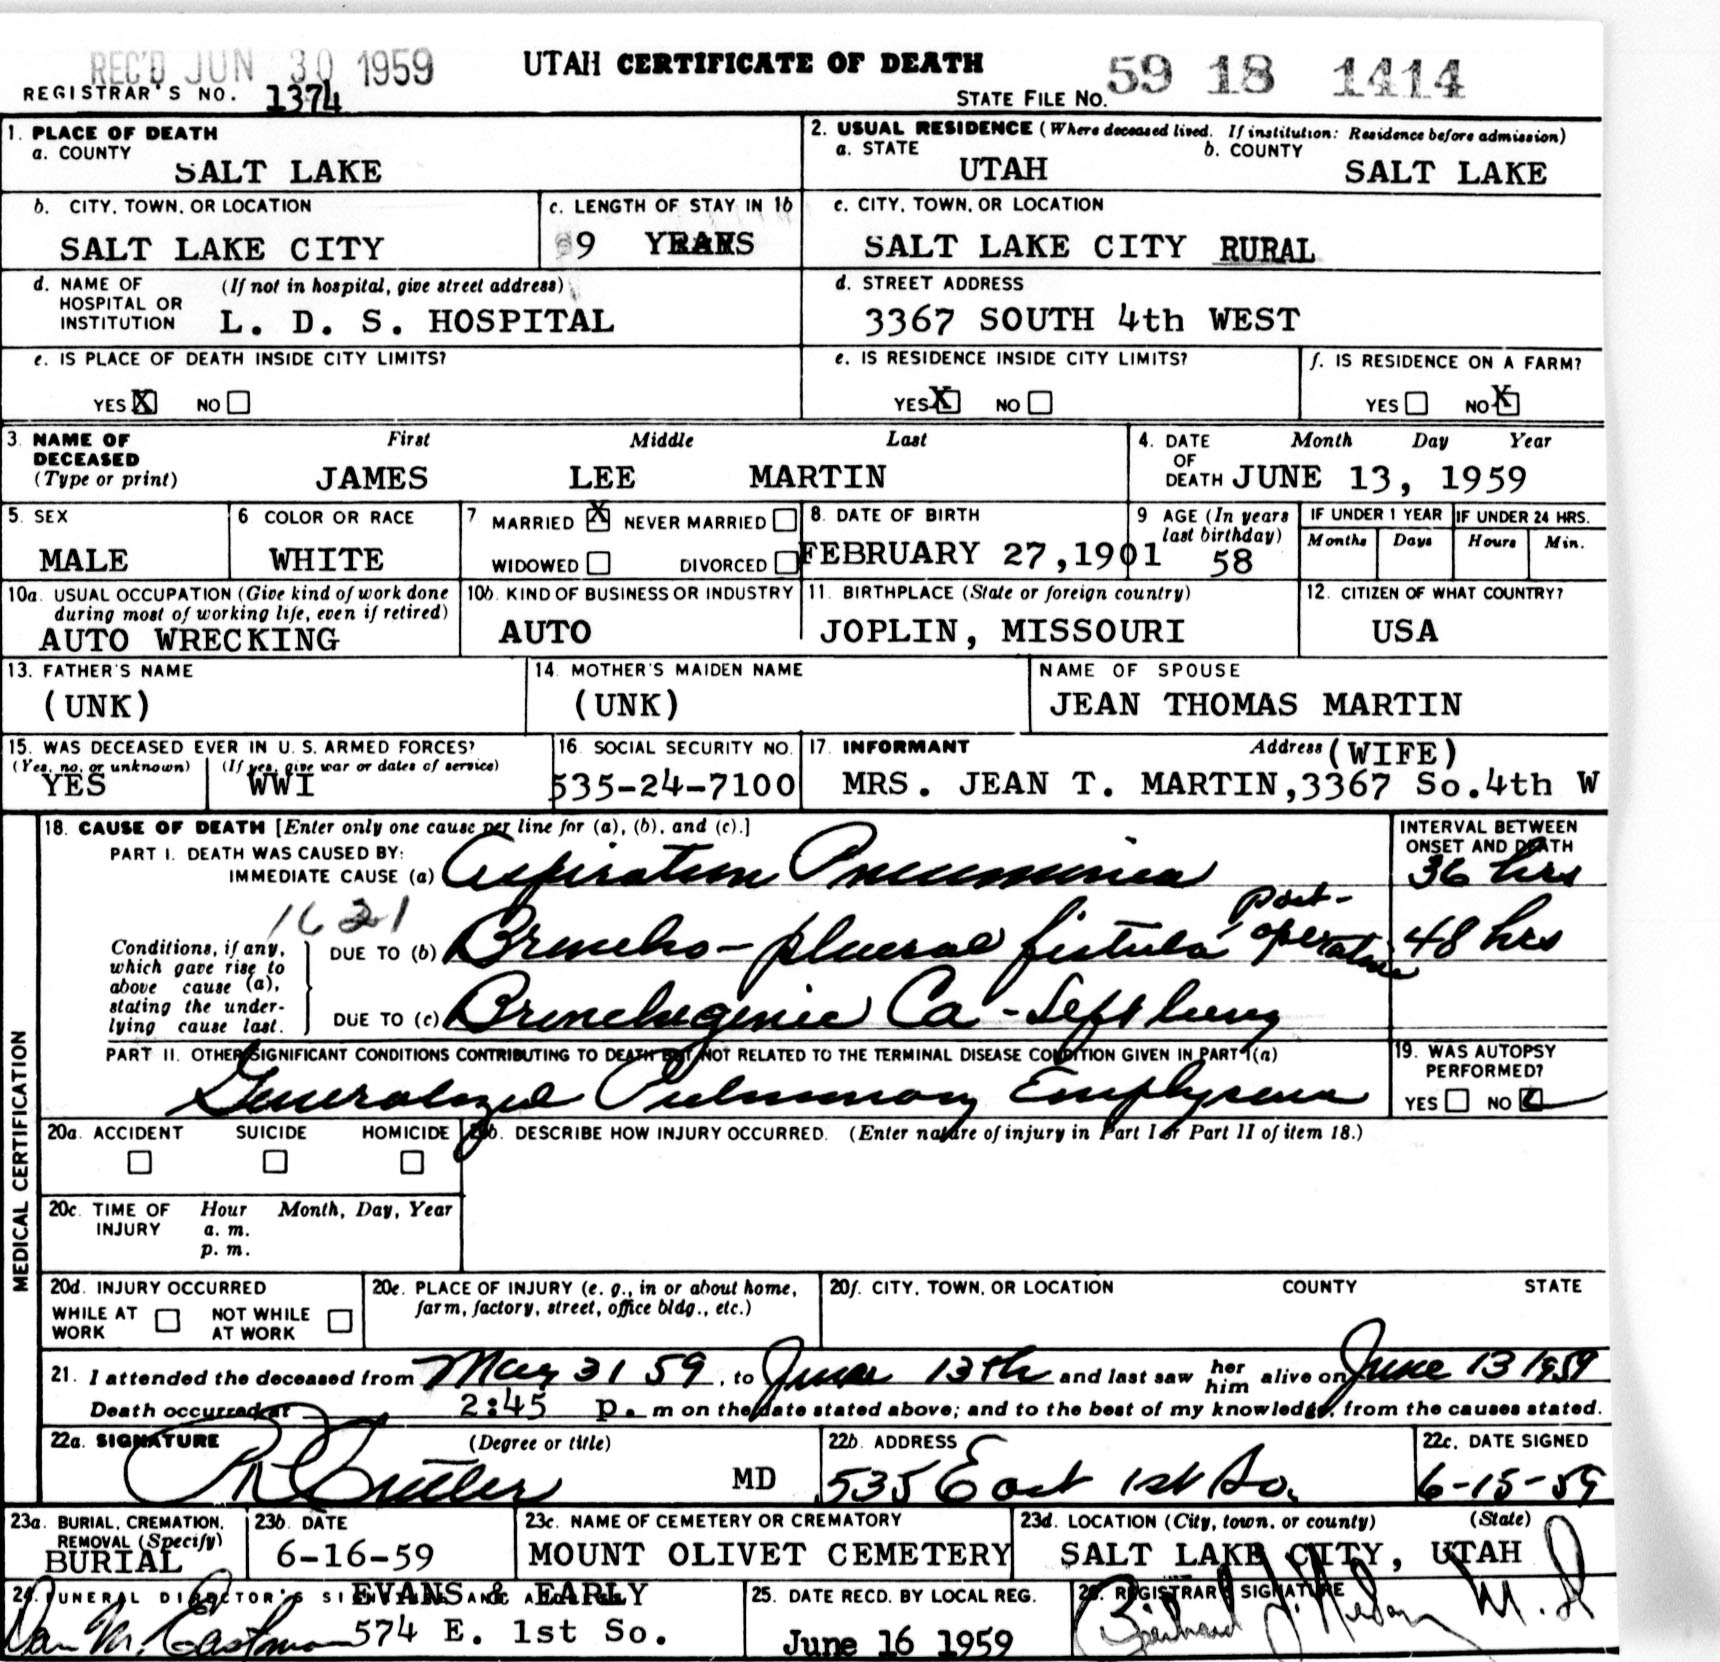 REC'D JUN 30 1959
UTAH CERTIFICATE OF DEATH
59 18 1414
REGISTRAR'S NO. 1374
STATE FILE NO.
1. PLACE OF DEATH
a. COUNTY
SALT LAKE
2. USUAL RESIDENCE (Where deceased lived. If institution: Residence before admission)
a. STATE
UTAH
b. COUNTY
SALT LAKE
b. CITY, TOWN, OR LOCATION
SALT LAKE CITY
c. LENGTH OF STAY IN 1b
9 YEARS
c. CITY, TOWN, OR LOCATION
SALT LAKE CITY RURAL
d. NAME OF HOSPITAL OR INSTITUTION
(If not in hospital, give street address)
L. D. S. HOSPITAL
d. STREET ADDRESS
3367 SOUTH 4th WEST
e. IS PLACE OF DEATH INSIDE CITY LIMITS?
YES X NO
e. IS RESIDENCE INSIDE CITY LIMITS?
YES X NO
f. IS RESIDENCE ON A FARM?
YES NO X
3. NAME OF DECEASED
(Type or print)
First Middle Last
JAMES LEE MARTIN
4. DATE OF DEATH
Month Day Year
JUNE 13, 1959
5. SEX
MALE
6 COLOR OR RACE
WHITE
7 MARRIED X NEVER MARRIED
WIDOWED DIVORCED
8. DATE OF BIRTH
FEBRUARY 27,1901
9 AGE (In years last birthday)
58
IF UNDER 1 YEAR
Months Days
IF UNDER 24 HRS.
Hours Min.
10a. USUAL OCCUPATION (Give kind of work done during most of working life, even if retired)
AUTO WRECKING
10b. KIND OF BUSINESS OR INDUSTRY
AUTO
11. BIRTHPLACE (State or foreign country)
JOPLIN, MISSOURI
12. CITIZEN OF WHAT COUNTRY?
USA
13. FATHER'S NAME
(UNK)
14. MOTHER'S MAIDEN NAME
(UNK)
NAME OF SPOUSE
JEAN THOMAS MARTIN
15. WAS DECEASED EVER IN U. S. ARMED FORCES?
(Yes, no, or unknown) (If yes, give war or dates of service)
YES WWI
16. SOCIAL SECURITY NO.
535-24-7100
17. INFORMANT Address (WIFE)
MRS. JEAN T. MARTIN,3367 So.4th W
MEDICAL CERTIFICATION
18. CAUSE OF DEATH [Enter only one cause per line for (a), (b), and (c).]
PART I. DEATH WAS CAUSED BY:
IMMEDIATE CAUSE (a) Aspiration Pneumonia
INTERVAL BETWEEN ONSET AND DEATH
36 hrs
1621
Conditions, if any, which gave rise to above cause (a), stating the underlying cause last.
DUE TO (b) Broncho-pleural fistula post-operative
48 hrs
DUE TO (c) Bronchogenic Ca - Left lung
PART II. OTHER SIGNIFICANT CONDITIONS CONTRIBUTING TO DEATH BUT NOT RELATED TO THE TERMINAL DISEASE CONDITION GIVEN IN PART I(a)
Generalized Pulmonary Emphysema
19. WAS AUTOPSY PERFORMED?
YES NO
20a. ACCIDENT SUICIDE HOMICIDE
20b. DESCRIBE HOW INJURY OCCURRED. (Enter nature of injury in Part I or Part II of item 18.)
20c. TIME OF INJURY
Hour Month, Day, Year
a. m.
p. m.
20d. INJURY OCCURRED
WHILE AT WORK NOT WHILE AT WORK
20e. PLACE OF INJURY (e. g., in or about home, farm, factory, street, office bldg., etc.)
20f. CITY, TOWN, OR LOCATION COUNTY STATE
21. I attended the deceased from May 31 59, to June 13th and last saw her him alive on June 13 1959
Death occurred at 2:45 p. m on the date stated above; and to the best of my knowledge, from the causes stated.
22a. SIGNATURE (Degree or title)
Butler MD
22b. ADDRESS
535 East 1st So.
22c. DATE SIGNED
6-15-59
23a. BURIAL, CREMATION, REMOVAL (Specify)
BURIAL
23b. DATE
6-16-59
23c. NAME OF CEMETERY OR CREMATORY
MOUNT OLIVET CEMETERY
23d. LOCATION (City, town, or county) (State)
SALT LAKE CITY, UTAH
24. FUNERAL DIRECTOR'S SIGNATURE AND ADDRESS
EVANS & EARLY
Dan M. Eastman 574 E. 1st So.
25. DATE RECD. BY LOCAL REG.
June 16 1959
26. REGISTRAR'S SIGNATURE
M.D.